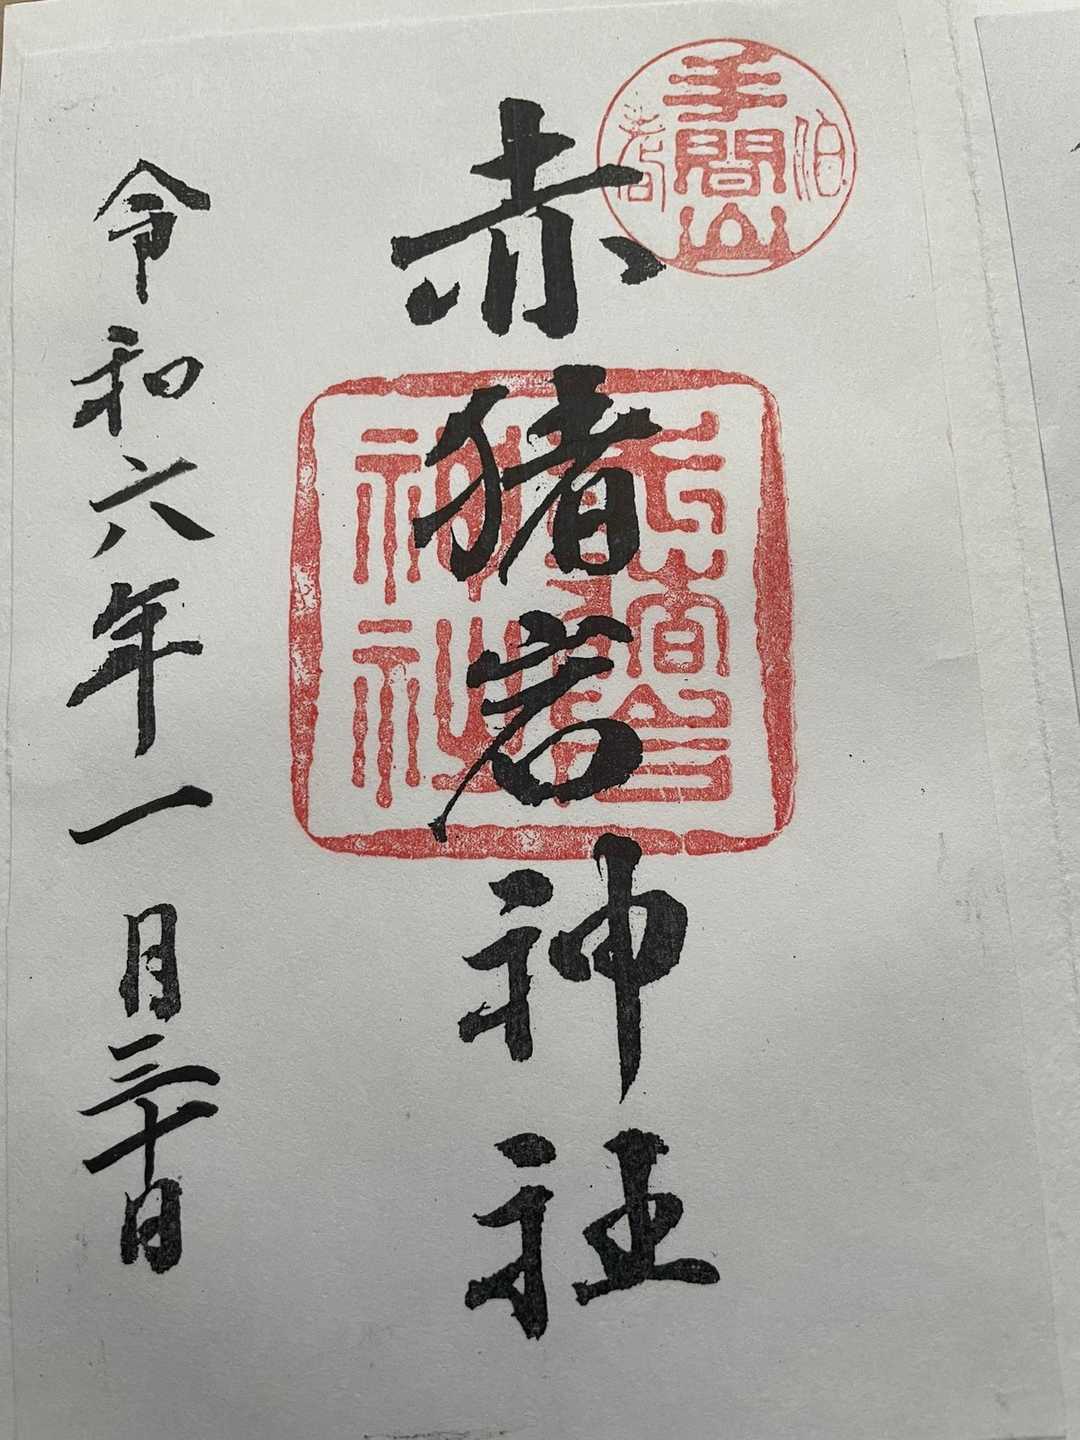 伯
手間山
耆
赤猪岩神社
神社
令和六年一月三十日